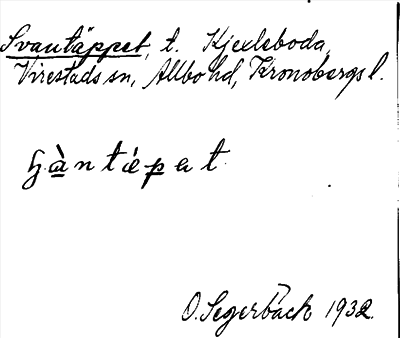 Svantäppet, t. Kjexleboda,
Virestads sn, Allbo hd, Kronobergs l.
O. Segerbäck 1932.